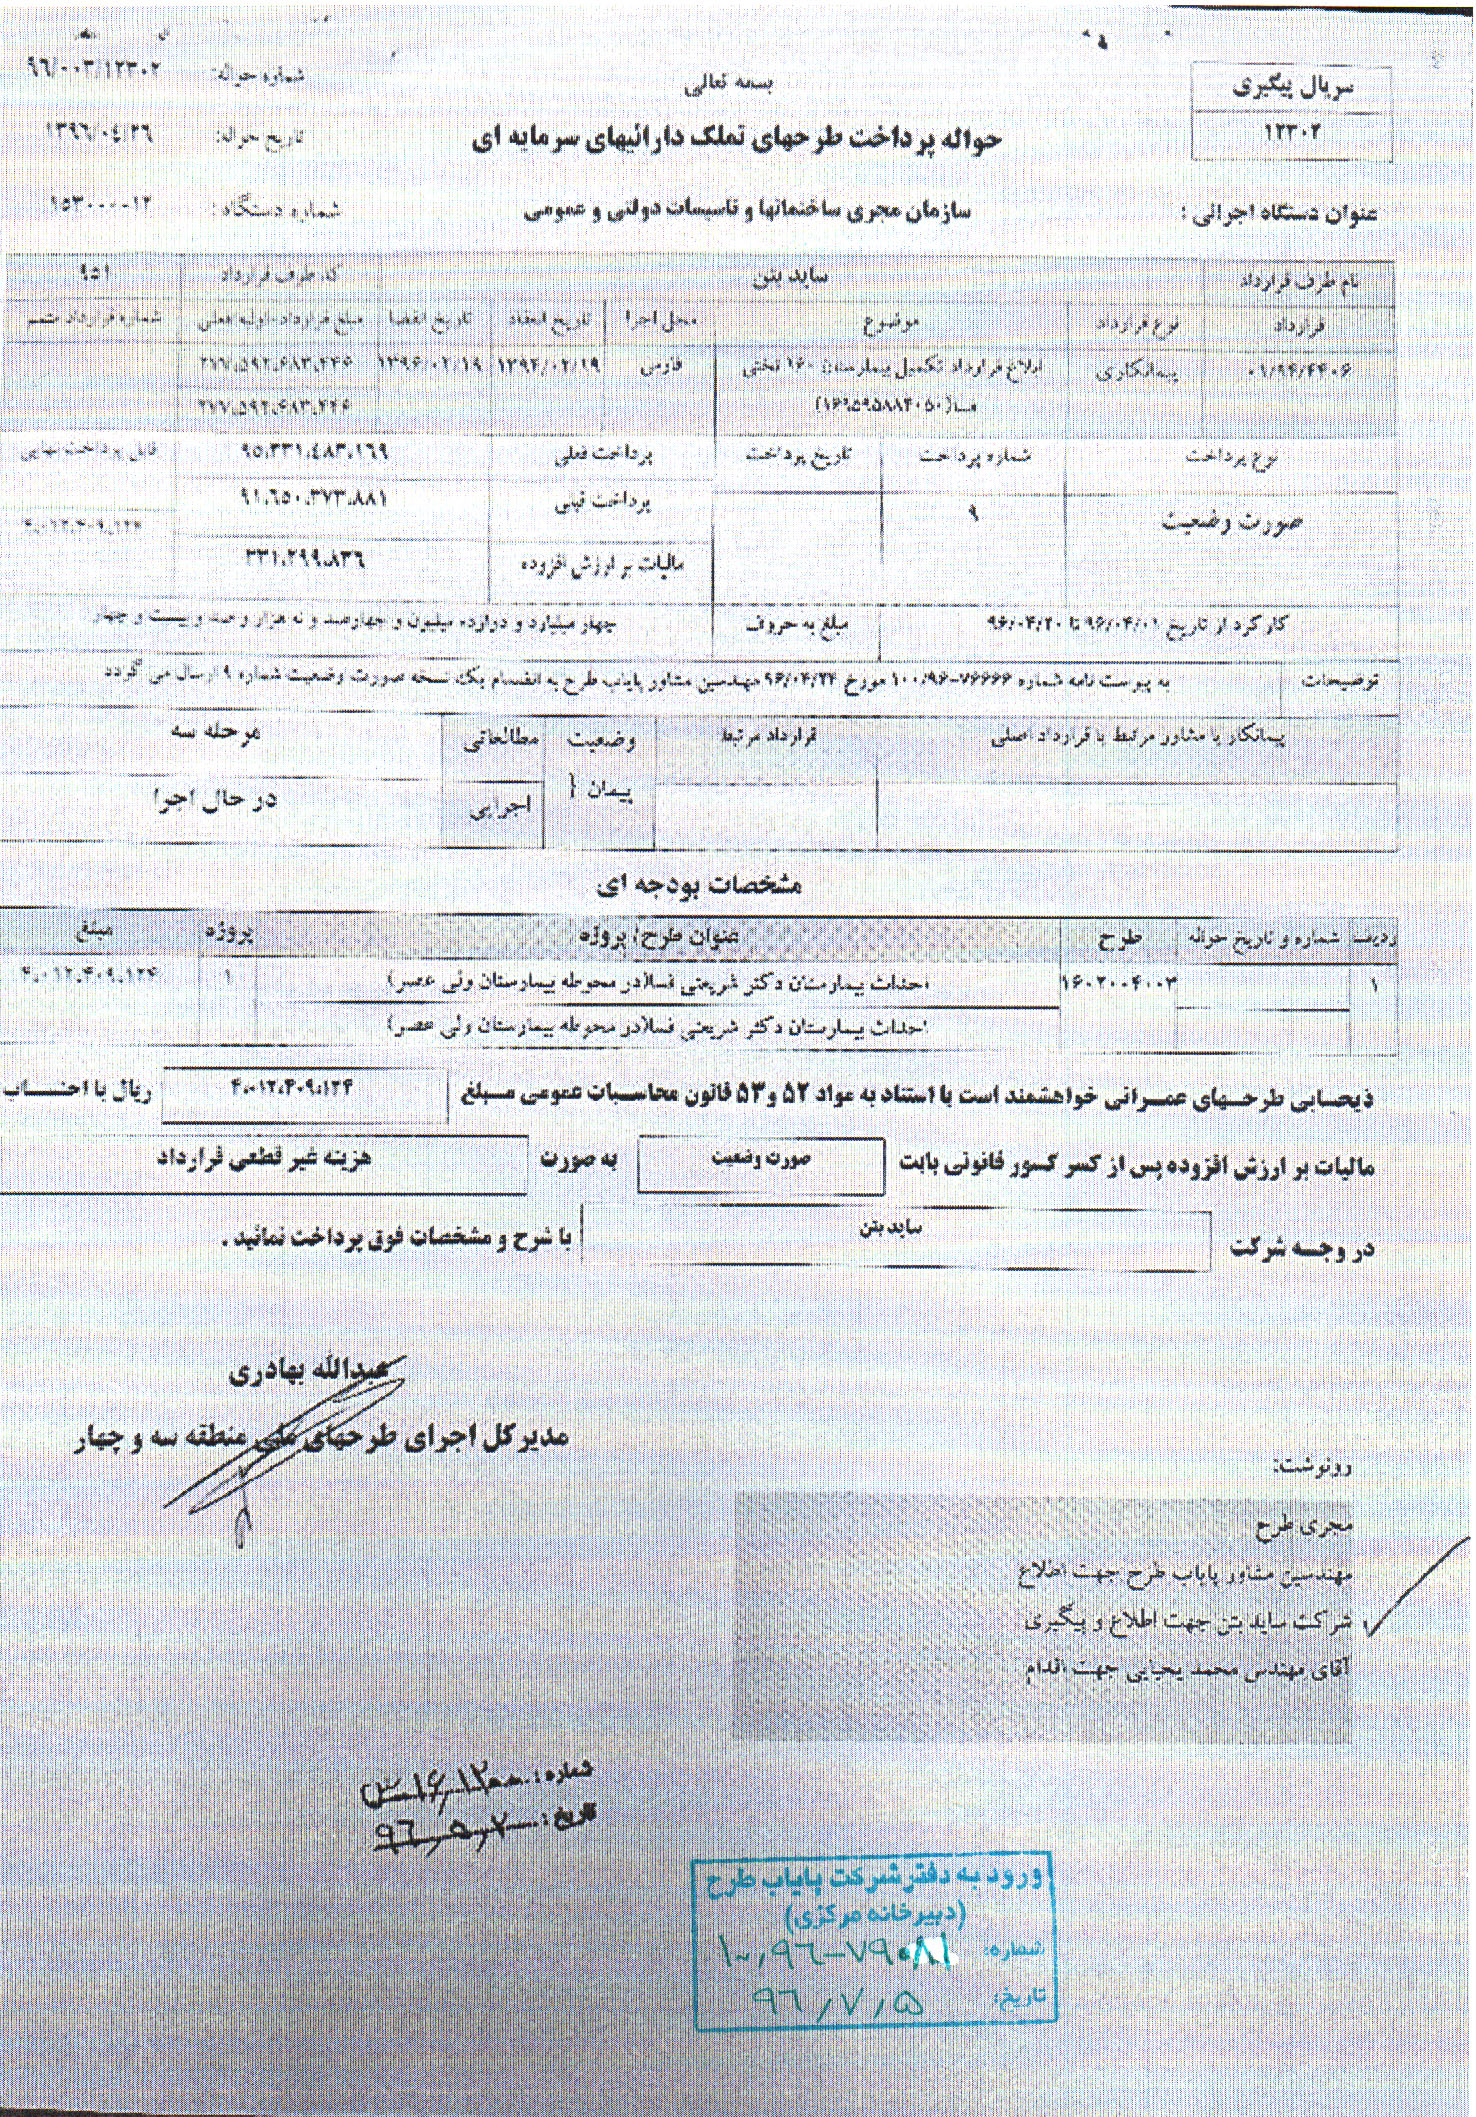 بسمه تعالی
سریال پیگیری
۱۲۳۰۲
شماره حواله: ۹۶/۰۰۳/۱۲۳۰۲
حواله پرداخت طرحهای تملک دارائیهای سرمایه ای
تاریخ حواله: ۱۳۹۶/۰۴/۲۶
عنوان دستگاه اجرائی : سازمان مجری ساختمانها و تاسیسات دولتی و عمومی
شماره دستگاه: ۱۵۳۰۰۰-۱۲
نام طرف قرارداد ساید بتن کد طرف قرارداد ۹۵۱
قرارداد نوع قرارداد موضوع محل اجرا تاریخ انعقاد تاریخ انقضا مبلغ قرارداد-اولیه/فعلی شماره قرارداد متمم
۰۱/۹۴/۴۴۰۶ پیمانکاری ابلاغ قرارداد تکمیل بیمارستان ۱۶۰ تختی فارس ۱۳۹۴/۰۲/۱۹ ۱۳۹۶/۰۲/۱۹ ۲۷۷,۵۹۲,۶۸۳,۴۴۶
فسا(۱۶۹۵۹۵۸۸۴۰۵۰) ۲۷۷,۵۹۲,۶۸۳,۴۴۶
نوع پرداخت شماره پرداخت تاریخ پرداخت پرداخت فعلی ۹۵,۳۳۱,۴۸۳,۱۶۹ قابل پرداخت نهایی
صورت وضعیت ۹ پرداخت قبلی ۹۱,۶۵۰,۳۷۳,۸۸۱ ۴,۰۱۲,۴۰۹,۱۲۴
مالیات بر ارزش افزوده ۳۳۱,۲۹۹,۸۳۶
کارکرد از تاریخ ۹۶/۰۴/۰۱ تا ۹۶/۰۴/۲۰ مبلغ به حروف چهار میلیارد و دوازده میلیون و چهارصد و نه هزار و صد و بیست و چهار
توضیحات به پیوست نامه شماره ۷۶۶۶۶-۱۰۰/۹۶ مورخ ۹۶/۰۴/۲۴ مهندسین مشاور پایاب طرح به انضمام یک نسخه صورت وضعیت شماره ۹ ارسال می گردد
پیمانکار یا مشاور مرتبط با قرارداد اصلی قرارداد مرتبط وضعیت مطالعاتی مرحله سه
پیمان { اجرایی در حال اجرا
مشخصات بودجه ای
ردیف شماره و تاریخ حواله طرح عنوان طرح/ پروژه پروژه مبلغ
۱ ۱۶۰۲۰۰۴۰۰۳ احداث بیمارستان دکتر شریعتی فسا(در محوطه بیمارستان ولی عصر) ۱ ۴,۰۱۲,۴۰۹,۱۲۴
احداث بیمارستان دکتر شریعتی فسا(در محوطه بیمارستان ولی عصر)
ذیحسابی طرحهای عمرانی خواهشمند است با استناد به مواد ۵۲ و ۵۳ قانون محاسبات عمومی مبلغ ۴,۰۱۲,۴۰۹,۱۲۴ ریال با احتساب
مالیات بر ارزش افزوده پس از کسر کسور قانونی بابت صورت وضعیت به صورت هزینه غیر قطعی قرارداد
در وجه شرکت ساید بتن با شرح و مشخصات فوق پرداخت نمائید .
عبدالله بهادری
مدیرکل اجرای طرحهای ملی منطقه سه و چهار
رونوشت:
مجری طرح
مهندسین مشاور پایاب طرح جهت اطلاع
شرکت ساید بتن جهت اطلاع و پیگیری
آقای مهندس محمد یحیایی جهت اقدام
شماره:
تاریخ: ۹۶/۵/۷
ورود به دفتر شرکت پایاب طرح
(دبیرخانه مرکزی)
شماره: ۱۰۰/۹۶-۷۹۰۸۱
تاریخ: ۹۶/۷/۵